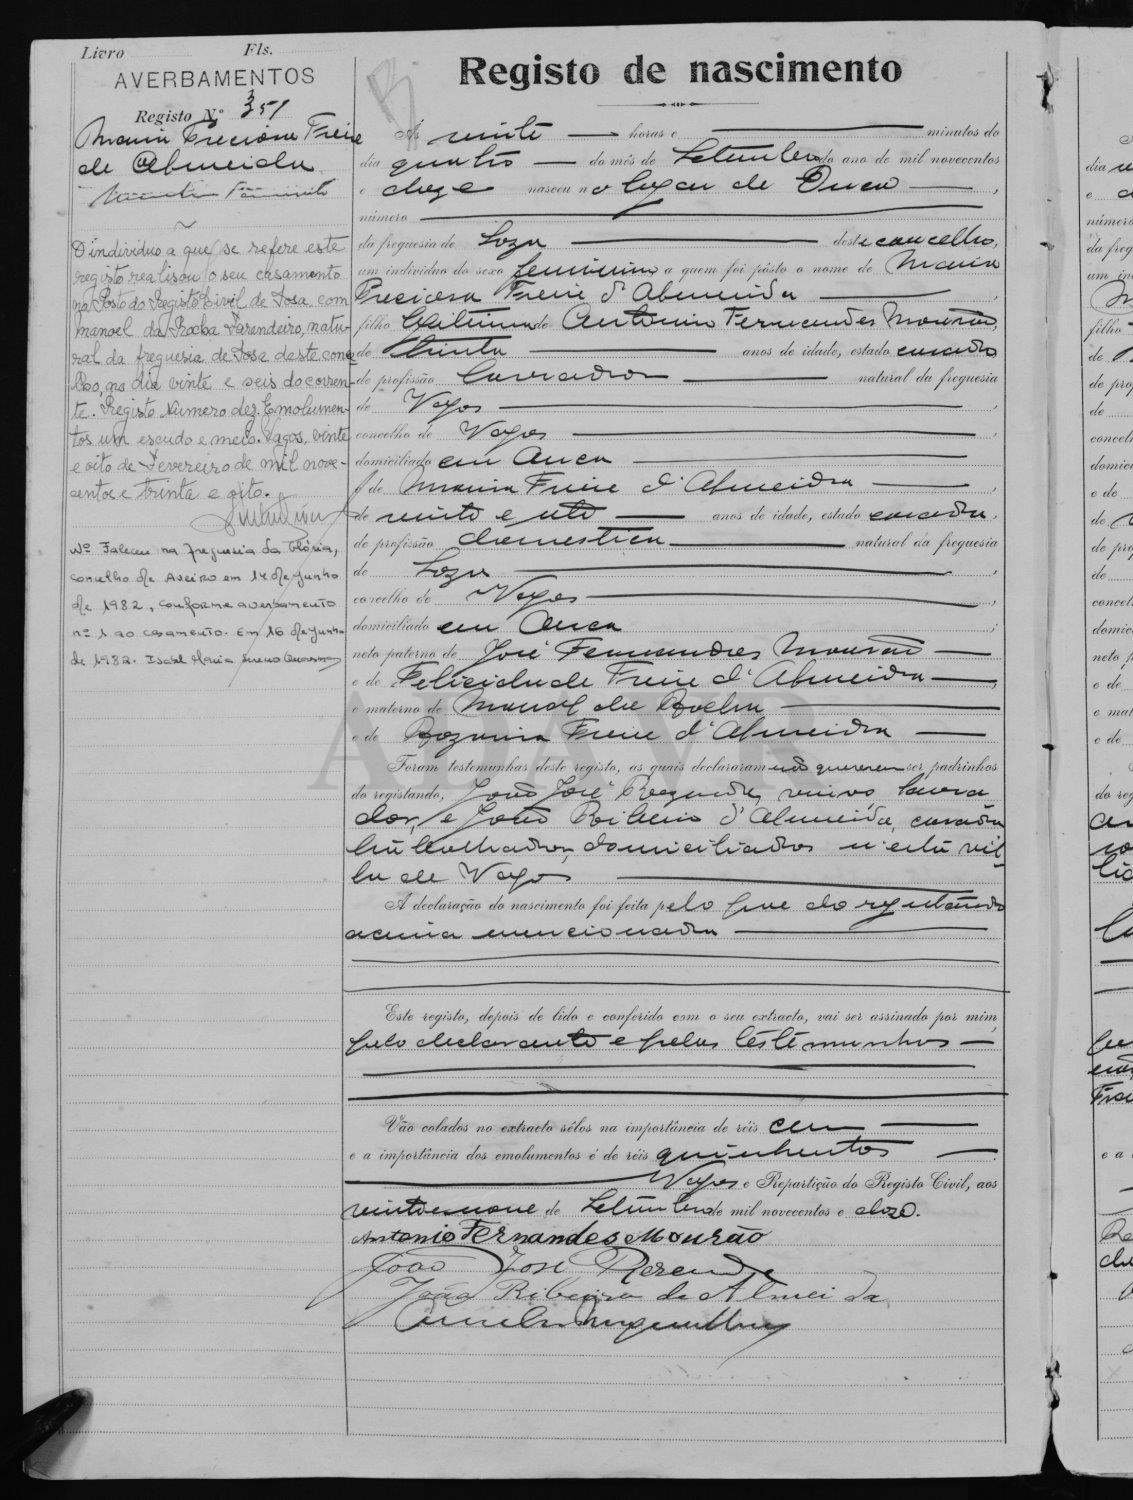 Livro Fls.
AVERBAMENTOS
Registo N.º 351
Maria Preciosa Freire
de Almeida
O individuo a que se refere este
registo realisou o seu casamento
no Posto do Registo Civil de Sosa com
Manoel da Rocha Farendeiro, natu-
ral da freguesia de Sosa deste conce-
lho, no dia vinte e seis do corren-
te. Registo Numero dez. Emolumen-
tos um escudo e meio. Vagos, vinte
e oito de Fevereiro de mil nove-
centos e trinta e oito.
Nº Faleceu na freguesia da Glória,
concelho de Aveiro em 14 de Junho
de 1982, conforme averbamento
nº 1 ao casamento. Em 16 de Junho
de 1982. Isabel Maria
Registo de nascimento
Ás vinte horas e minutos do
dia quatro do mês de Setembro do ano de mil novecentos
e doze nasceu no logar de Ouca,
número
da freguesia de Soza deste concelho,
um individuo do sexo feminino a quem foi pôsto o nome de Maria
Preciosa Freire d'Almeida,
filho legitimo de Antonio Fernandes Mourão,
de trinta anos de idade, estado casado
de profissão lavrador natural da freguesia
de Vagos,
concelho de Vagos,
domiciliado em Ouca
e de Maria Freire d'Almeida,
de vinte e oito anos de idade, estado casada,
de profissão domestica natural da freguesia
de Soza,
concelho de Vagos,
domiciliado em Ouca;
neto paterno de José Fernandes Mourão
e de Felicidade Freire d'Almeida,
e materno de Manoel da Rocha
e de Rozaria Freire d'Almeida
Foram testemunhas deste registo, as quais declararam não quererem ser padrinhos
do registando, João José Rezende, viuvo lavra
dor, e João Ribeiro d'Almeida, casado
domiciliados n'esta vil-
la de Vagos
A declaração do nascimento foi feita pelo pae do registando
acima mencionado
Este registo, depois de lido e conferido com o seu extracto, vai ser assinado por mim,
pelo declarante e pelas testemunhas
Vão colados no extracto sêlos na importância de réis cem
e a importância dos emolumentos é de réis quinhentos
Vagos e Repartição do Registo Civil, aos
vinte e nove de Setembro de mil novecentos e doze.
Antonio Fernandes Mourão
João José Rezende
João Ribeiro de Almeida
ADAVR